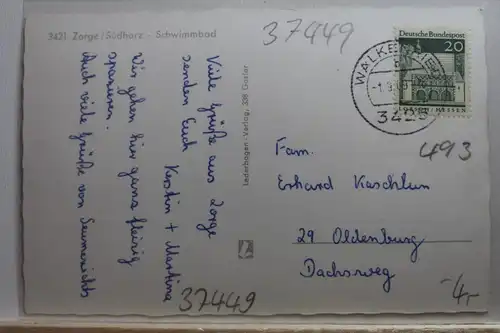 3421 Zorge/Südharz - Schwimmbad
37449
Viele Grüße aus Zorge
senden Euch
Kerstin + Martina
Wir gehen hier ganz fleißig
spazieren.
Auch viele Grüße von
37449
Lederbogen Verlag, 338 Goslar
Deutsche Bundespost
20
WALKENRIED
3425
493
Fam.
Erhard Kaschlun
29 Oldenburg
Dachsweg
-4,-